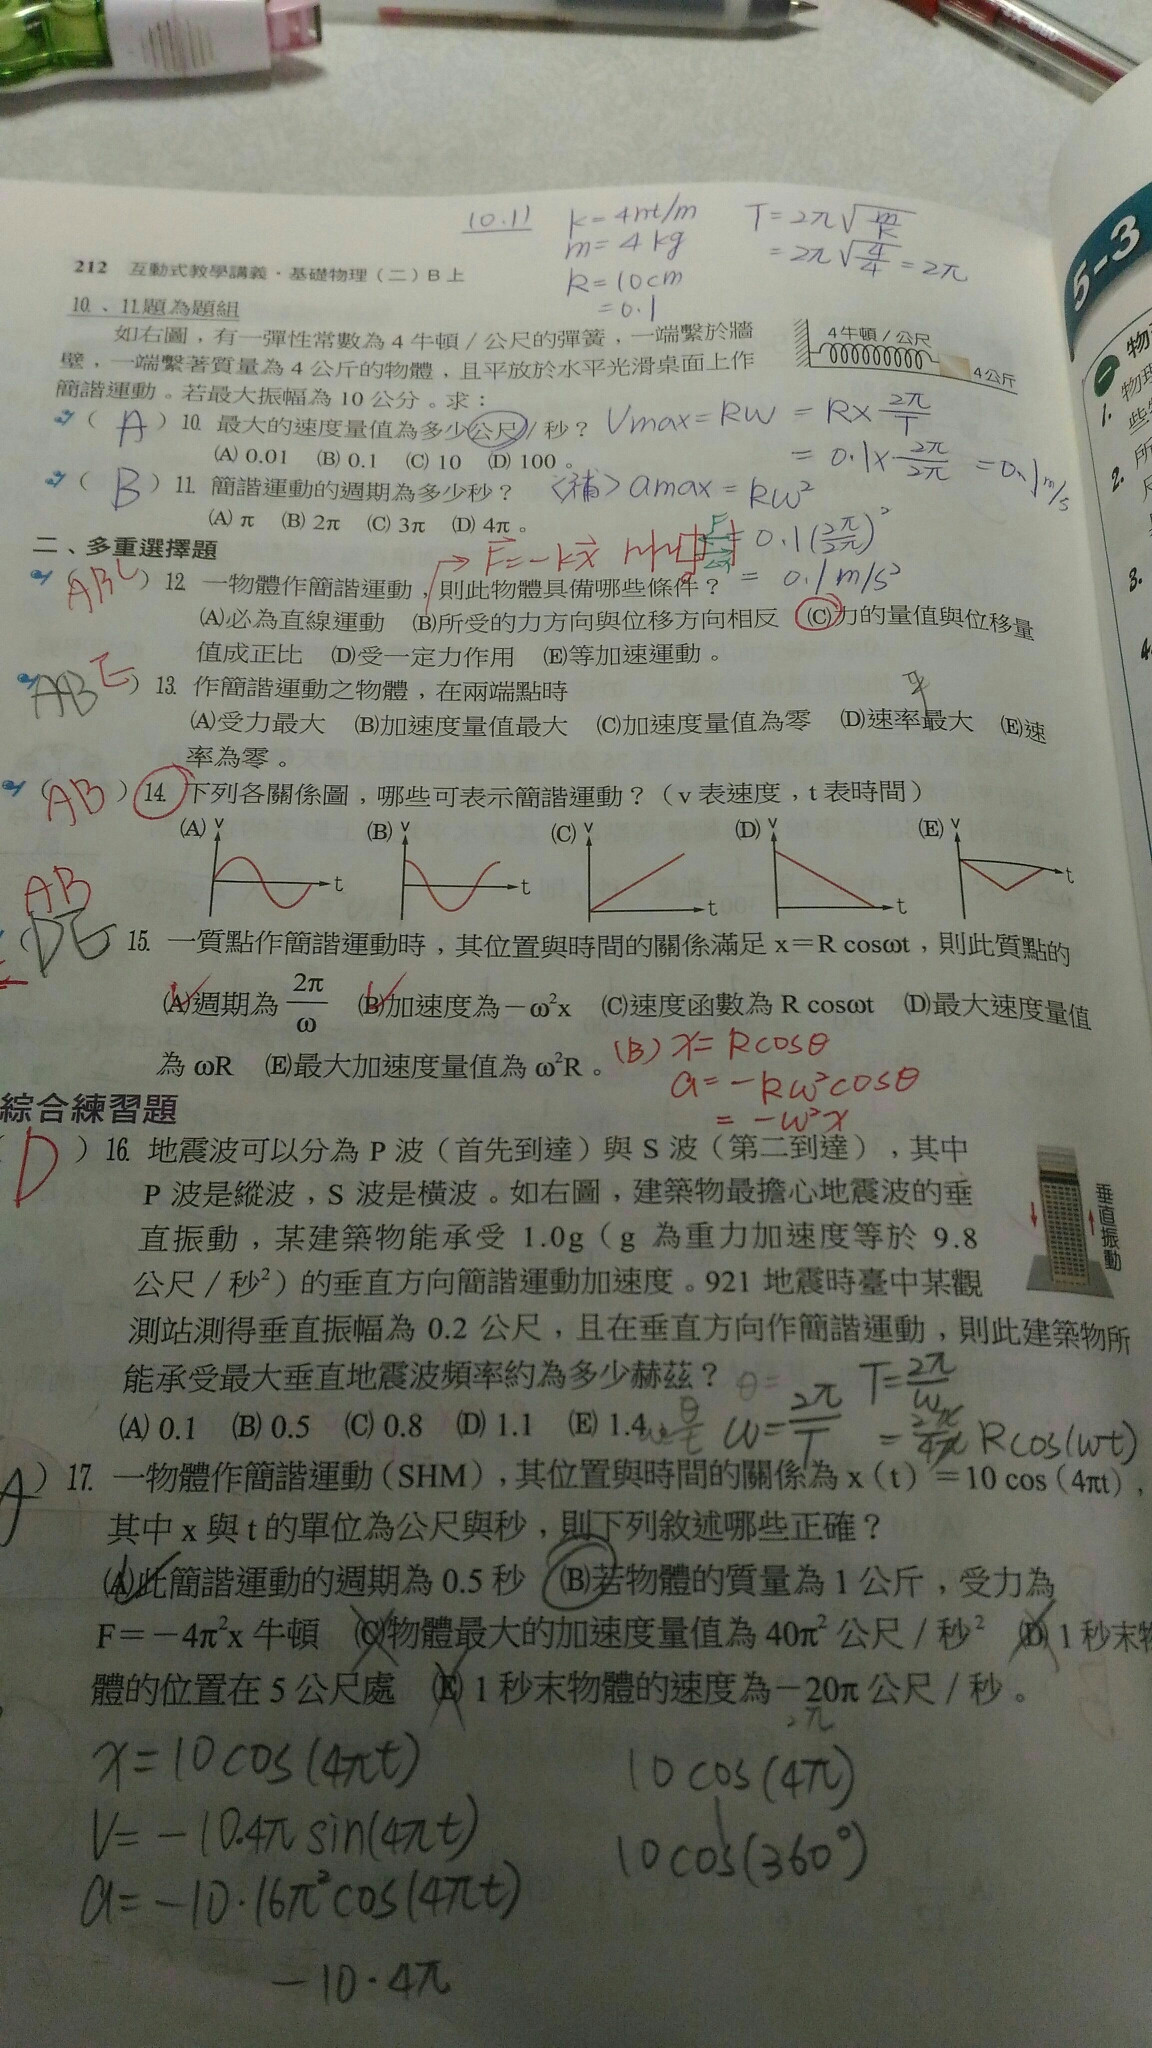 10.11
k=4nt/m
m=4kg
R=10cm
=0.1
T=2π√m/k
=2π√4/4=2π
5-3
212 互動式教學講義・基礎物理(二)B上
10.、11.題為題組
如右圖,有一彈性常數為4牛頓/公尺的彈簧,一端繫於牆
壁,一端繫著質量為4公斤的物體,且平放於水平光滑桌面上作
簡諧運動。若最大振幅為10公分。求:
4牛頓/公尺
4公斤
(A)10. 最大的速度量值為多少公尺/秒?
Vmax=Rω=R×2π/T
(A) 0.01 (B) 0.1 (C) 10 (D) 100。
=0.1×2π/2π=0.1m/s
(B)11. 簡諧運動的週期為多少秒?
<補>amax=Rω²
(A) π (B) 2π (C) 3π (D) 4π。
=0.1(2π/2π)²
=0.1m/s²
二、多重選擇題
F=-kx
ABC)12. 一物體作簡諧運動,則此物體具備哪些條件?
(A)必為直線運動 (B)所受的力方向與位移方向相反 (C)力的量值與位移量
值成正比 (D)受一定力作用 (E)等加速運動。
ABE)13. 作簡諧運動之物體,在兩端點時
(A)受力最大 (B)加速度量值最大 (C)加速度量值為零 (D)速率最大 (E)速
率為零。
(AB)14. 下列各關係圖,哪些可表示簡諧運動?(v表速度,t表時間)
(A) v t (B) v t (C) v t (D) v t (E) v t
AB
DE
15. 一質點作簡諧運動時,其位置與時間的關係滿足 x=R cosωt,則此質點的
(A)週期為 2π/ω (B)加速度為-ω²x (C)速度函數為 R cosωt (D)最大速度量值
為 ωR (E)最大加速度量值為 ω²R。
(B) x=Rcosθ
a=-Rω²cosθ
=-ω²x
綜合練習題
(D)16. 地震波可以分為 P 波(首先到達)與 S 波(第二到達),其中
P 波是縱波,S 波是橫波。如右圖,建築物最擔心地震波的垂
直振動,某建築物能承受 1.0g(g 為重力加速度等於 9.8
公尺/秒²)的垂直方向簡諧運動加速度。921 地震時臺中某觀
測站測得垂直振幅為 0.2 公尺,且在垂直方向作簡諧運動,則此建築物所
能承受最大垂直地震波頻率約為多少赫茲?
(A) 0.1 (B) 0.5 (C) 0.8 (D) 1.1 (E) 1.4
垂直振動
ω=2π/T
T=2π/ω
=2π/4π
Rcos(ωt)
A)17. 一物體作簡諧運動(SHM),其位置與時間的關係為 x(t)=10 cos(4πt),
其中 x 與 t 的單位為公尺與秒,則下列敘述哪些正確?
(A)此簡諧運動的週期為 0.5 秒 (B)若物體的質量為 1 公斤,受力為
F=-4π²x 牛頓 (C)物體最大的加速度量值為 40π² 公尺/秒² (D) 1 秒末物
體的位置在 5 公尺處 (E) 1 秒末物體的速度為-20π 公尺/秒。
x=10cos(4πt)
V=-10.4πsin(4πt)
a=-10·16π²cos(4πt)
-10·4π
10cos(4π)
10cos(360°)